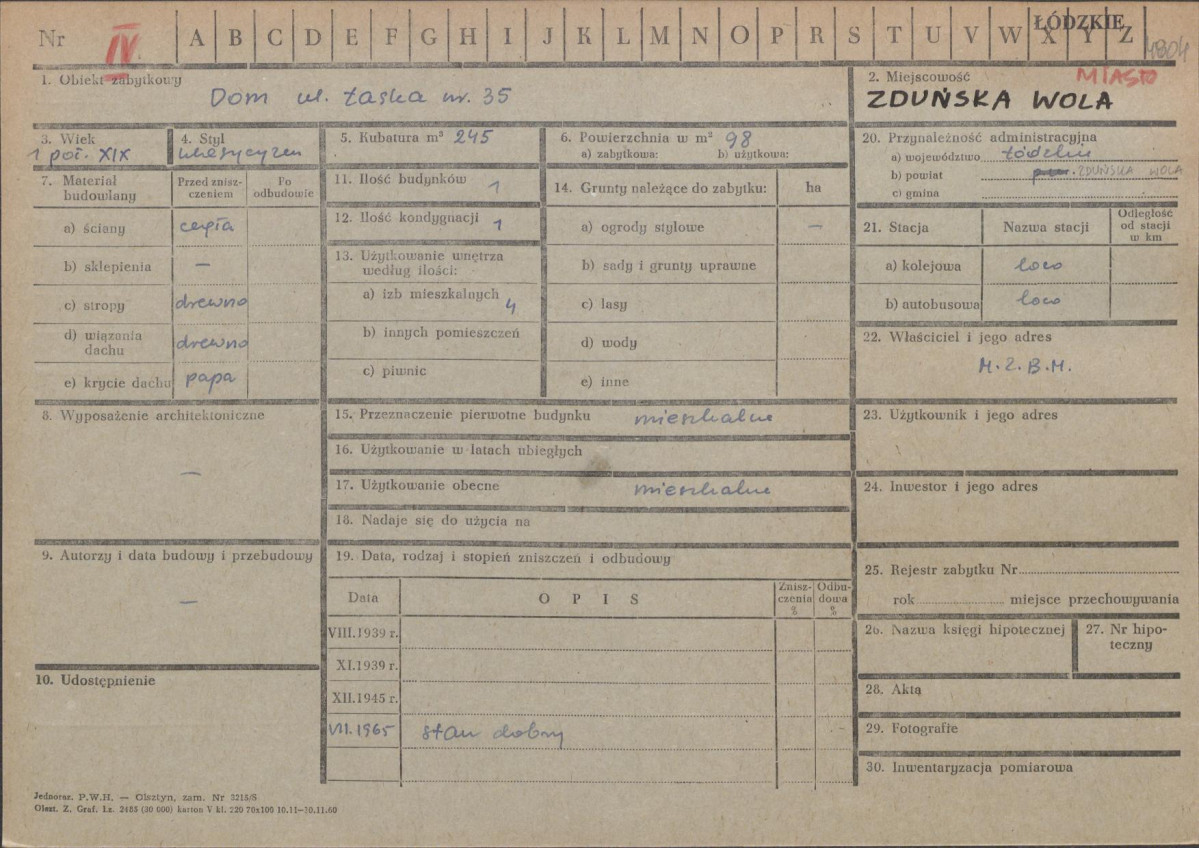 Nr IV A B C D E F G H I J K L M N O P R S T U V W X Y Z
ŁÓDZKIE
4804
1. Obiekt zabytkowy
Dom ul. Łaska nr. 35
2. Miejscowość
MIASTO
ZDUŃSKA WOLA
3. Wiek
1 poł. XIX
4. Styl
5. Kubatura m³ 245
6. Powierzchnia w m² 98
a) zabytkowa: b) użytkowa:
7. Materiał budowlany
Przed zniszczeniem
Po odbudowie
a) ściany cegła
b) sklepienia –
c) stropy drewno
d) wiązania dachu drewno
e) krycie dachu papa
8. Wyposażenie architektoniczne
–
9. Autorzy i data budowy i przebudowy
–
10. Udostępnienie
11. Ilość budynków 1
12. Ilość kondygnacji 1
13. Użytkowanie wnętrza
według ilości:
a) izb mieszkalnych 4
b) innych pomieszczeń
c) piwnic
14. Grunty należące do zabytku: ha
a) ogrody stylowe –
b) sady i grunty uprawne
c) lasy
d) wody
e) inne
15. Przeznaczenie pierwotne budynku mieszkalne
16. Użytkowanie w latach ubiegłych
17. Użytkowanie obecne mieszkalne
18. Nadaje się do użycia na
19. Data, rodzaj i stopień zniszczeń i odbudowy
Data
OPIS
Zniszczenia %
Odbudowa %
VIII.1939 r.
XI.1939 r.
XII.1945 r.
VII.1965 stan dobry
20. Przynależność administracyjna
a) województwo łódzkie
b) powiat ZDUŃSKA WOLA
c) gmina
21. Stacja
Nazwa stacji
Odległość
od stacji
w km
a) kolejowa loco
b) autobusowa loco
22. Właściciel i jego adres
M.Z.B.M.
23. Użytkownik i jego adres
24. Inwestor i jego adres
25. Rejestr zabytku Nr
rok miejsce przechowywania
26. Nazwa księgi hipotecznej
27. Nr hipoteczny
28. Akta
29. Fotografie
30. Inwentaryzacja pomiarowa
Jednoraz. P.W.H. — Olsztyn, zam. Nr 3215/S
Olszt. Z. Graf. Lz. 2485 (30 000) karton V kl. 220 70x100 10.11—20.11.60